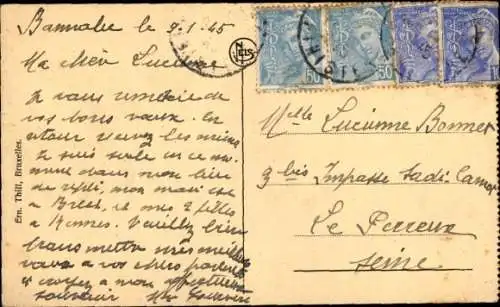 Bannalec le 9-1-45
Ma chère Lucienne
Je vous remercie de
vos bons vœux. En
retour recevez les miens
Je suis seule en ce mo-
ment dans mon lieu
de repli, mon mari est
à Brest, et mes 2 filles
à Rennes. Veuillez bien
transmettre mes meilleurs
vœux à vos chers parents
et croyez à mon affectueux
souvenir
Ern. Thill, Bruxelles.
NELS
50
50
Mlle Lucienne Bonnet
3 bis Impasse Sadi-Carnot
Le Perreux
Seine